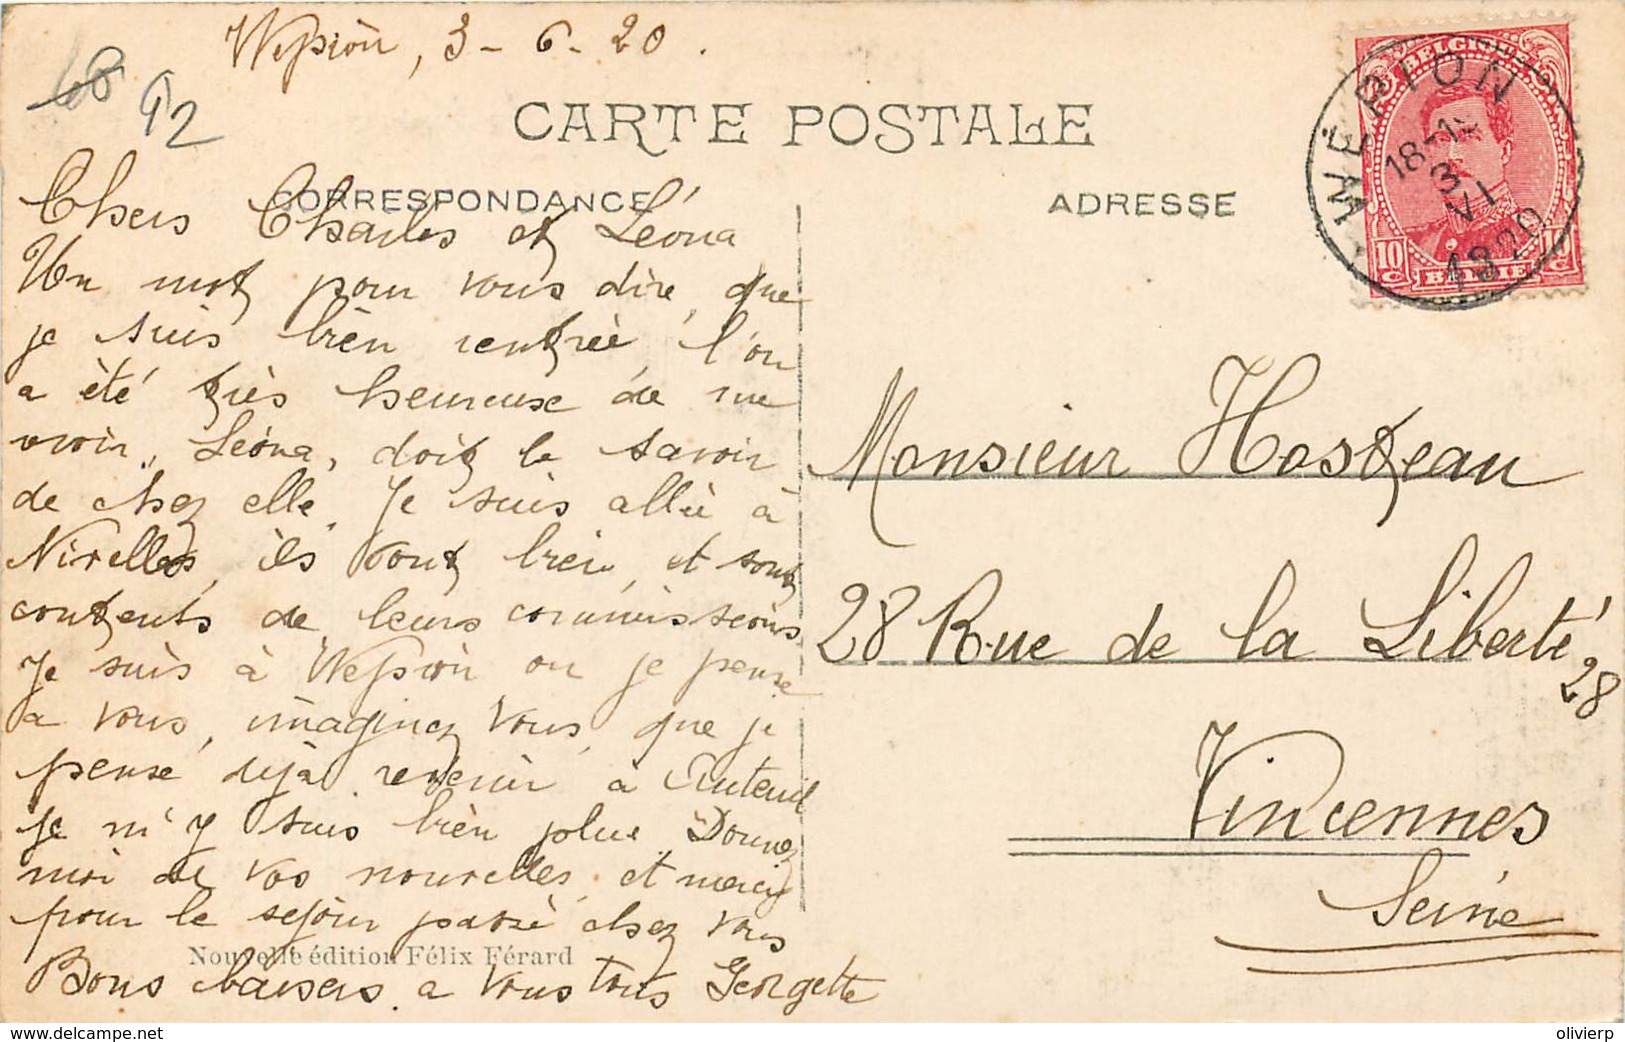 Wepion, 3-6-20.
68
92
CARTE POSTALE
CORRESPONDANCE
ADRESSE
Chers Charles et Léona
Un mot pour vous dire, que
je suis bièn rentrée, l'on
a été très heureuse de me
voir, Léona, doit le savoir
de chez elle. Je suis allée à
Nivelles, ils vont bien, et sont
contents de leurs commissions
Je suis à Wepion ou je pense
a vous, imaginez vous, que je
pense dèjà revenir a Auteuil
je m'y suis bièn plue. Donnez
moi de vos nouvelles, et merci
pour le sejour passé chez vous
Nouvelle édition Félix Férard
Bons baisers a vous tous Georgette
BELGIQUE
10 c
BELGIE
10 c
WÉPION
18-1
3 VI
1920
Monsieur Hosteau
28 Rue de la Liberté
28
Vincennes
Seine
www.delcampe.net
olivierp